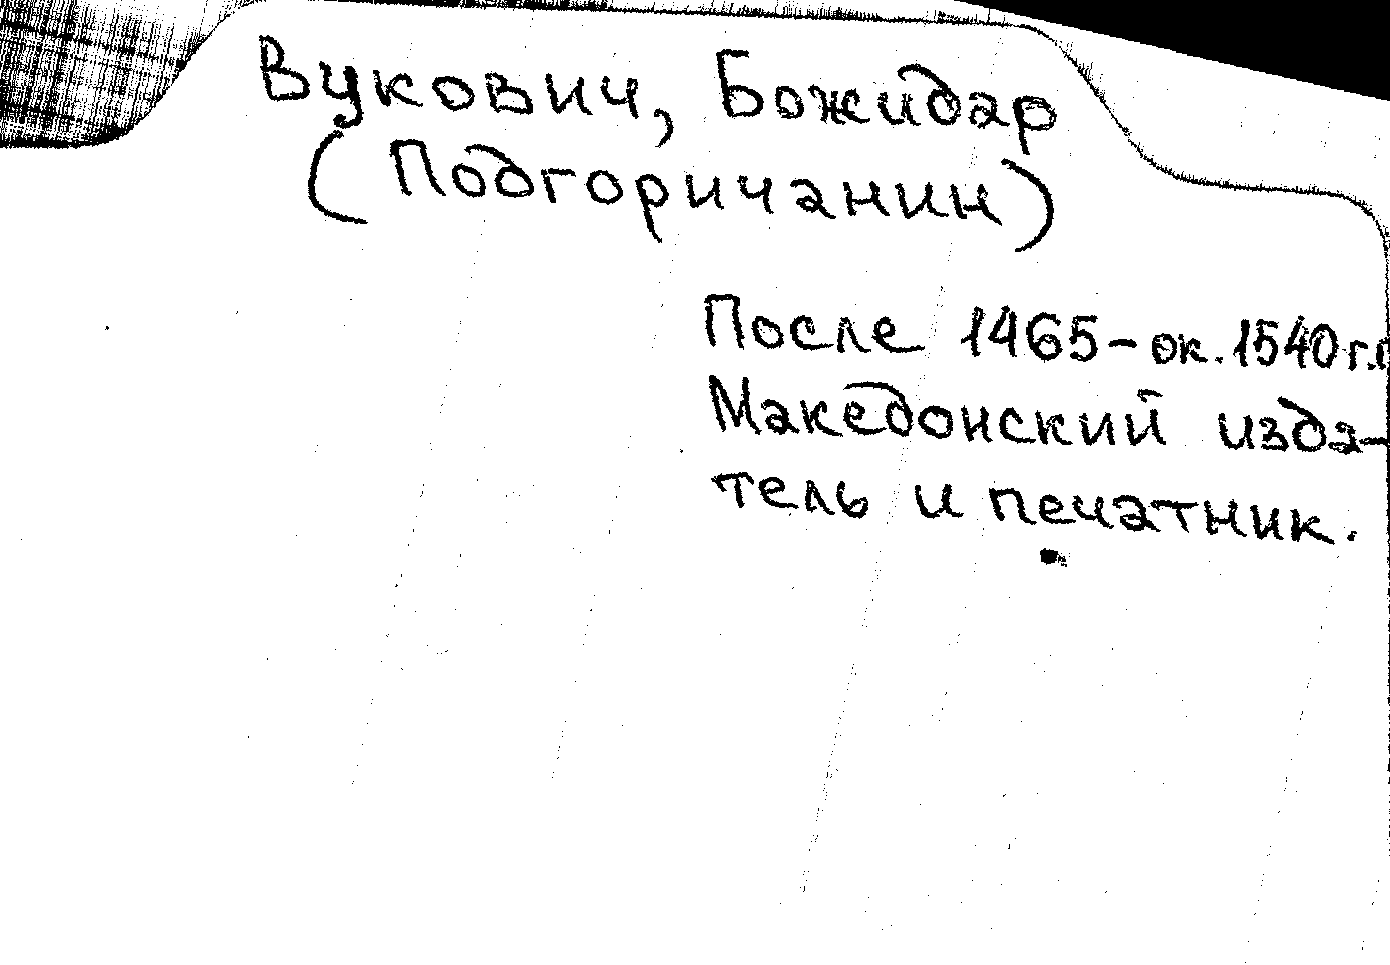 Вукович, Божидар
(Подгоричанин)
После 1465 - ок. 1540 г.г
Македонский изда-
тель и печатник.